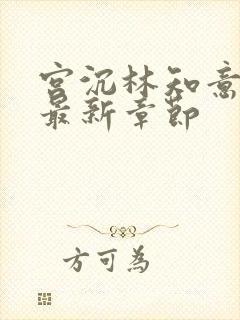 宫沉林知意
最新章节
方可为